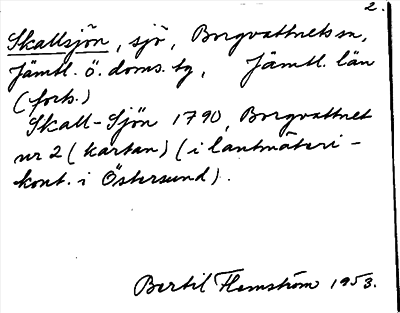 2.
Skallsjön, sjö, Borgvattnets sn,
Jämtl. ö. doms. tg, Jämtl. län
(forts.)
Skall-Sjön 1790, Borgvattnet
nr 2 (kartan) (i lantmäteri-
kont. i Östersund).
Bertil Flemström 1953.